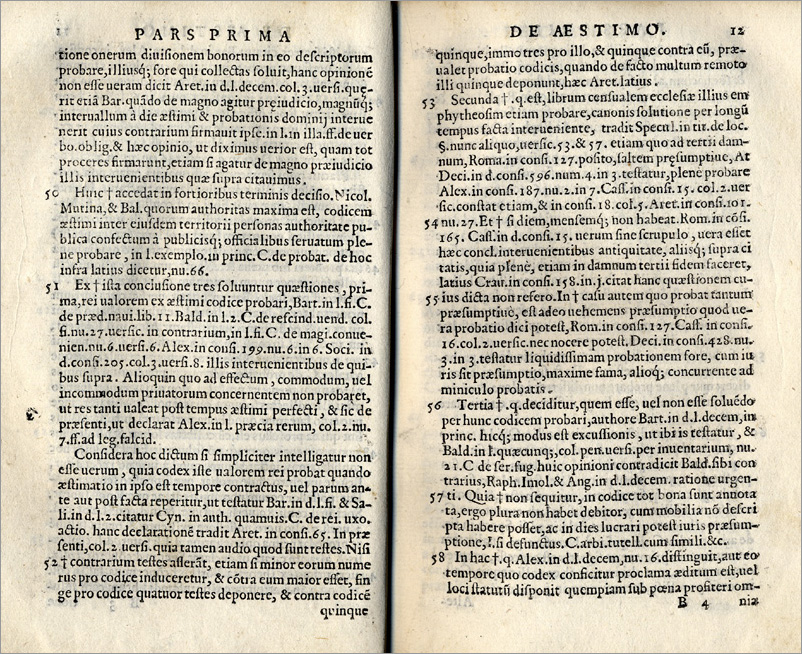 PARS PRIMA
tione onerum diuisionem bonorum in eo descriptorum
probare, illiusq; fore qui collectas soluit, hanc opinionē
non esse ueram dicit Aret. in d.l. decem. col. 3. uersi. quę-
rit etiā Bar. quādo de magno agitur preiudicio, magnūq;
interuallum à die æstimi & probationis dominij interue
nerit cuius contrarium firmauit ipse. in l. 1. in illa. ff. de uer
bo. oblig. & hæc opinio, ut diximus uerior est, quam tot
proceres firmarunt, etiam si agatur de magno præiudicio
illis interuenientibus quæ supra citauimus.
50 Huic † accedat in fortioribus terminis decisio. Nicol.
Mutina, & Bal. quorum authoritas maxima est, codicem
æstimi inter eiusdem territorii personas authoritate pu-
blica confectum à publicisq; officialibus seruatum ple-
ne probare, in l. exemplo. in princ. C. de probat. de hoc
infra latius dicetur, nu. 66.
51 Ex † ista conclusione tres soluuntur quæstiones, pri-
ma, rei ualorem ex æstimi codice probari, Bart. in l. fi. C.
de præd. naui. lib. 11. Bald. in l. 2. C. de rescind. uend. col.
fi. nu. 27. uersic. in contrarium, in l. fi. C. de magi. conue-
nien. nu. 6. uersi. 6. Alex. in consi. 199. nu. 6. in 6. Soci. in
d. consi. 205. col. 3. uersi. 8. illis interuenientibus de qui-
bus supra. Alioquin quo ad effectum, commodum, uel
incommodum priuatorum concernentem non probaret,
ut res tanti ualeat post tempus æstimi perfecti, & sic de
præsenti, ut declarat Alex. in l. præcia rerum, col. 2. nu.
7. ff. ad leg. falcid.
Considera hoc dictum si simpliciter intelligatur non
esse uerum, quia codex iste ualorem rei probat quando
æstimatio in ipso est tempore contractus, uel parum an-
te aut post facta reperitur, ut testatur Bar. in d. l. fi. & Sa-
li. in d. l. 2. citatur Cyn. in auth. quamuis. C. de rei. uxo.
actio. hanc declarationē tradit Aret. in consi. 65. In præ
senti, col. 2. uersi. quia tamen audio quod sunt testes. Nisi
52 † contrarium testes asserāt, etiam si minor eorum nume
rus pro codice induceretur, & cōtra eum maior esset, fin
ge pro codice quatuor testes deponere, & contra codicē
quinque
DE AESTIMO. 12
quinque, immo tres pro illo, & quinque contra eū, præ-
ualet probatio codicis, quando de facto multum remoto
illi quinque deponunt, hæc Aret. latius.
53 Secunda †. q. est, librum censualem ecclesiæ illius em
phytheosim etiam probare, canonis solutione per longū
tempus facta interueniente, tradit Specul. in tit. de loc.
§. nunc aliquo, uersic. 53. & 57. etiam quo ad tertii dam-
num, Roma. in consi. 127. posito, saltem pręsumptiue, At
Deci. in d. consi. 596. num. 4. in 3. testatur, plene probare
Alex. in consi. 187. nu. 2. in 7. Cass. in consi. 15. col. 2. uer
sic. constat etiam, & in consi. 18. col. 5. Aret. in consi. 101.
54 nu. 27. Et † si diem, mensemq; non habeat. Rom. in cōsi.
165. Cass. in d. consi. 15. uerum sine scrupulo, uera esset
hæc concl. interuenientibus antiquitate, aliisq; supra ci
tatis, quia plenè, etiam in damnum tertii fidem faceret,
latius Crau. in consi. 158. in j. citat hanc quæstionem cu-
55 ius dicta non refero. In † casu autem quo probat tantum
præsumptiuè, est adeo uehemens præsumptio quod ue-
ra probatio dici potest, Rom. in consi. 127. Cass. in consi.
16. col. 2. uersic. nec nocere potest. Deci. in consi. 428. nu.
3. in 3. testatur liquidissimam probationem fore, cum iu
ris sit præsumptio, maxime fama, alioq; concurrente ad
miniculo probatis.
56 Tertia †. q. deciditur, quem esse, uel non esse soluēdo
per hunc codicem probari, authore Bart. in d. l. decem, in
princ. hicq; modus est excussionis, ut ibi is testatur, &
Bald. in l. quæcunq;, col. pen. uersi. per inuentarium, nu.
21. C de ser. fug. huic opinioni contradicit Bald. sibi con
trarius, Raph. Imol. & Ang. in d. l. decem. ratione urgen-
57 ti. Quia † non sequitur, in codice tot bona sunt annota
ta, ergo plura non habet debitor, cum mobilia nō descri
pta habere posset, ac in dies lucrari potest iuris præsum-
ptione, l. si defunctus. C. arbi. tutell. cum simili. &c.
58 In hac †. q. Alex. in d. l. decem, nu. 16. distinguit, aut eo
tempore quo codex conficitur proclama æditum est, uel
loci statutū disponit quempiam sub pœna profiteri om-
B 4 nia